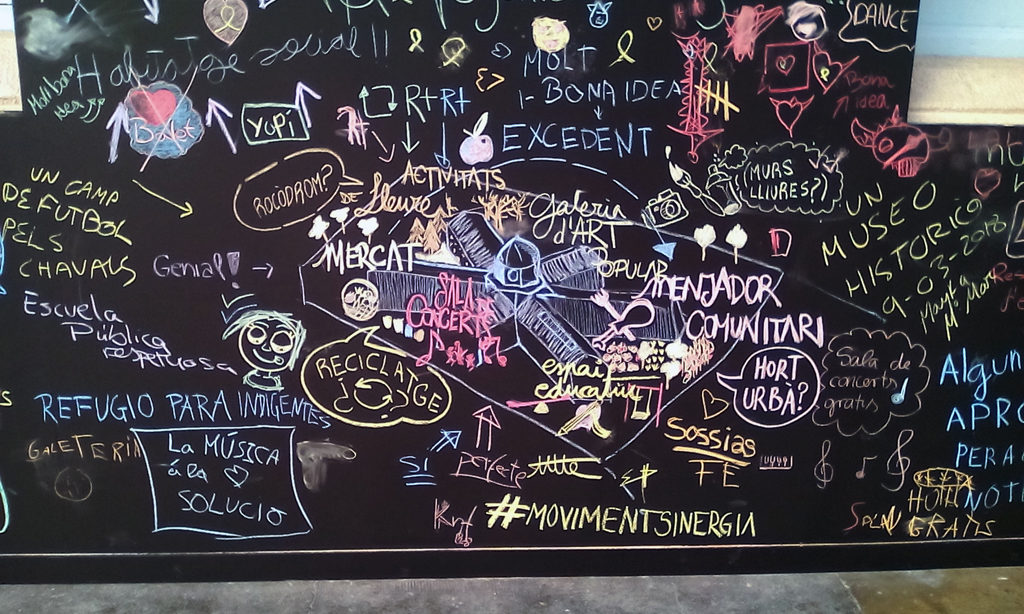 DANCE
Habitatge social !!
Molt bona
idea
MOLT
BONA IDEA
EXCEDENT
R+R+
Bona
idea
YUPI
ROCÒDROM?
ACTIVITATS
DE Lleure
Galeria
d'ART
MURS
LLIURES?
UN CAMP
DE FUTBOL
PELS
CHAVALS
UN
MUSEO
HISTORICO
9-03-2013
Genial! →
MERCAT
POPULAR
MENJADOR
COMUNITARI
SALA DE
CONCERTS
Escuela
Pública
respetuosa
RECICLATGE
espai
educatiu
HORT
URBÀ?
Sala de
concerts
gratis
REFUGIO PARA INDIGENTES
GALETERIA
LA MÚSICA
és la
SOLUCIÓ
SI
perfete
SOSSIAS
FE
Algun
APRO
PER A
NOTI
#MOVIMENTSINERGIA
GRATIS